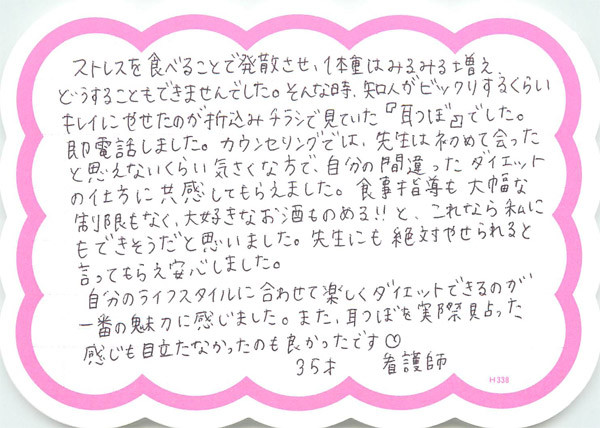 ストレスを食べることで発散させ、体重はみるみる増え
どうすることもできませんでした。そんな時、知人がビックリするくらい
キレイにやせたのが折込みチラシで見ていた『耳つぼ』でした。
即電話しました。カウンセリングでは、先生は初めて会った
と思えないくらい気さくな方で、自分の間違ったダイエット
の仕方に共感してもらえました。食事指導も大幅な
制限もなく、大好きなお酒ものめる!!と、これなら私に
もできそうだと思いました。先生にも絶対やせられると
言ってもらえ安心しました。
自分のライフスタイルに合わせて楽しくダイエットできるのが
一番の魅力に感じました。また、耳つぼを実際見占った
感じも目立たなかったのも良かったです♡
35才 看護師
H338